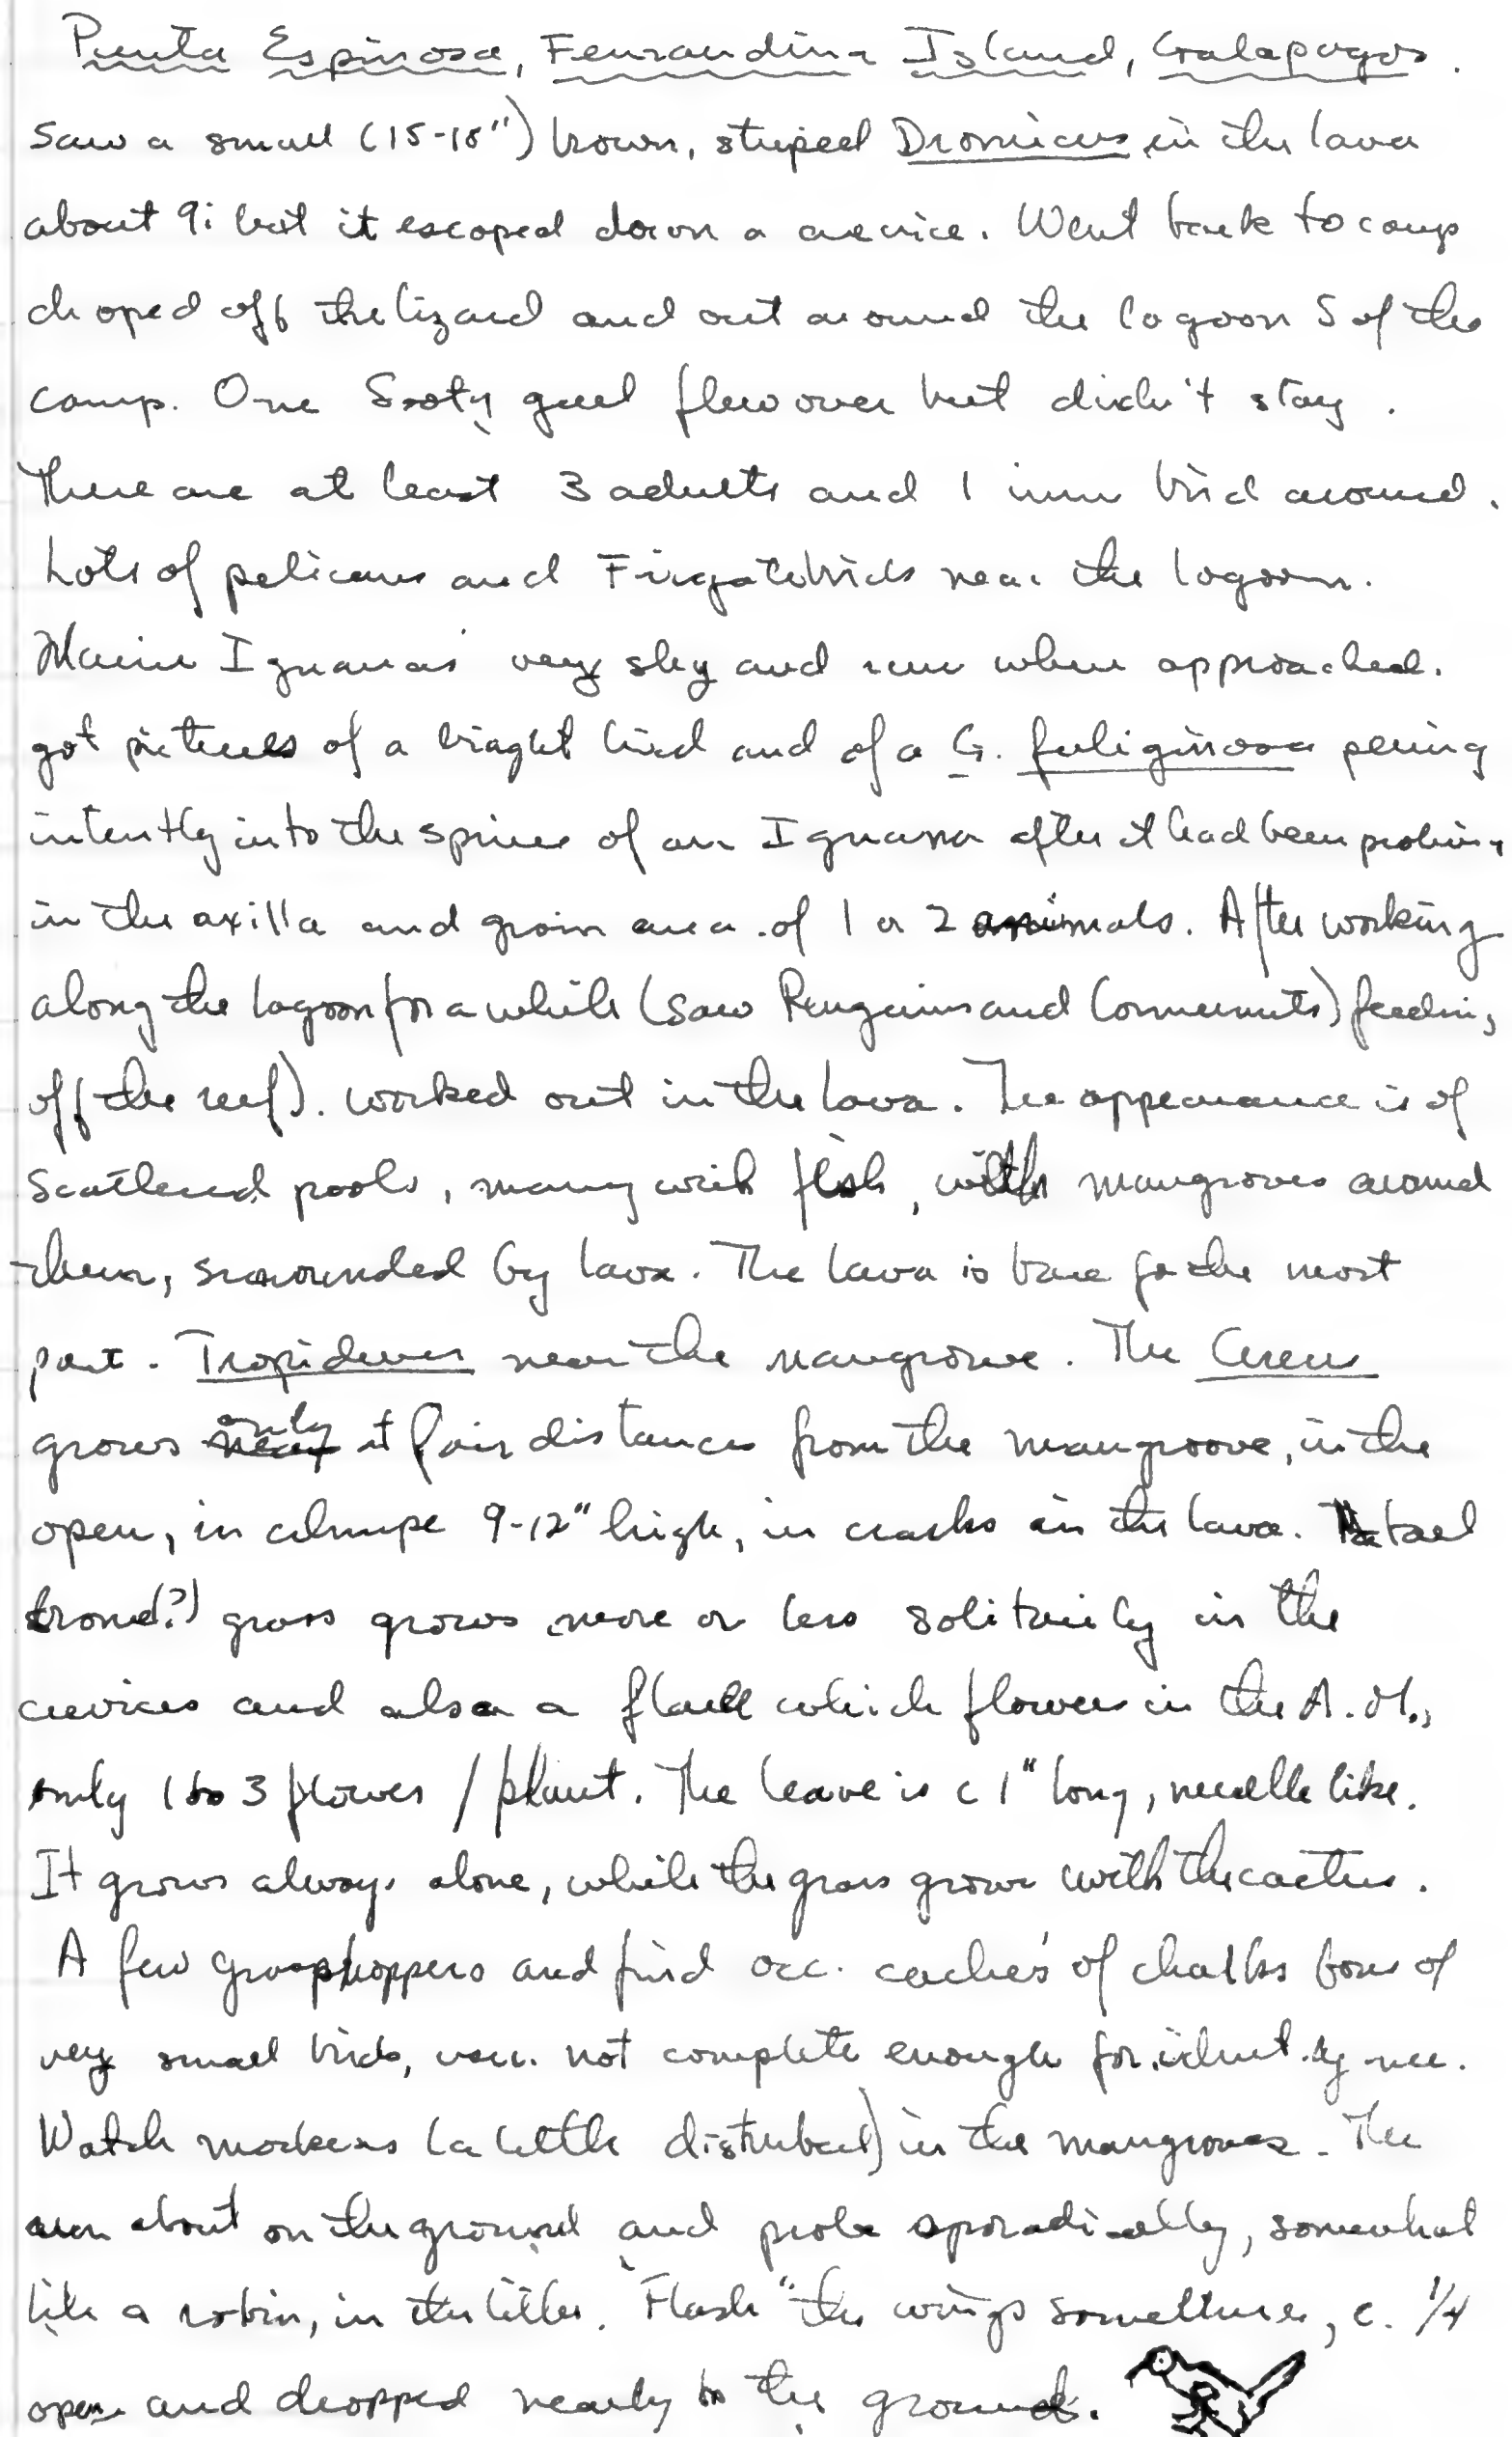 Punta Espinosa, Fernandina Island, Galapagos.
Saw a small (15-18") brown, striped Dromicus in the lava
about 9; but it escaped down a crevice. Went back to camp
droped off the lizard and out around the lagoon S of the
camp. One Sooty gull flew over but didn't stay.
There are at least 3 adults and 1 imm bird around.
Lots of pelicans and Frigatebirds near the lagoon.
Marine Iguanas very shy and run when approached.
got pictures of a bright bird and of a G. fuliginosa peering
intently into the spines of an Iguana after it had been probing
in the axilla and groin area of 1 or 2 animals. After working
along the lagoon for a while (saw Penguins and Cormorants) feeding
off the reef). worked out in the lava. The appearance is of
scattered pools, many with fish, with mangroves around
them, surrounded by lava. The lava is bare for the most
part. Tropidurus near the mangrove. The Cereus
grows only at fair distances from the mangroove, in the
open, in clumps 9-12" high, in cracks in the lava. A tall
grass grows more or less solitarily in the
crevices and also a which flowers in the A.M.,
only 1 to 3 flowers / plant. The leave is c 1" long, needle like.
It grows always alone, while the grass grows with the cactus.
A few grasshoppers and find occ. caches of bones of
very small birds, usu. not complete enough for ident. by me.
Watch mockers (a little disturbed) in the mangroves. They
run about on the ground and probe sporadically, somewhat
like a robin, in the litter. "Flash" the wings sometimes, c. 1/4
open and dropped nearly to the ground.